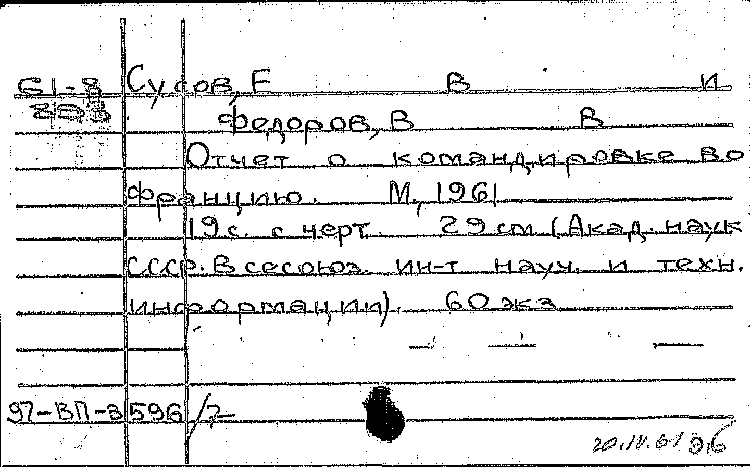 61-8 Сусов, Е В и
898 Федоров, В В
Отчет о командировке во
Францию. М., 1961
19 с. с черт. 29 см (Акад. наук
СССР. Всесоюз. ин-т науч. и техн.
информации). 60 экз
97-ВП-3 596/2
20.IV.61 96